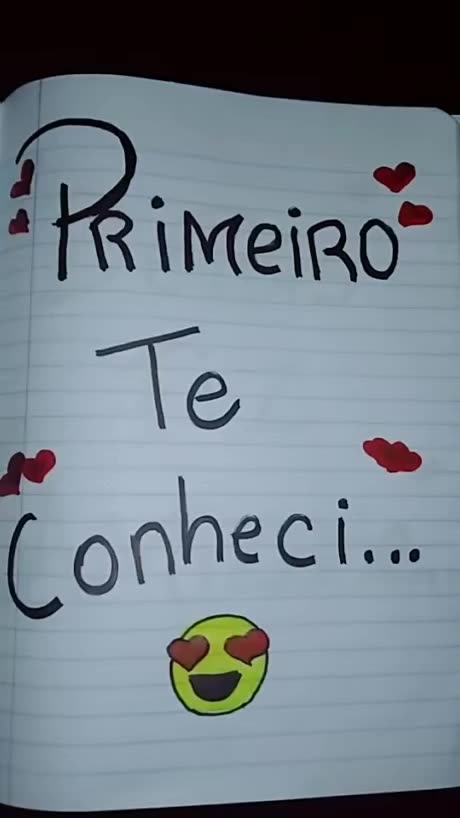 Primeiro
Te
Conheci...